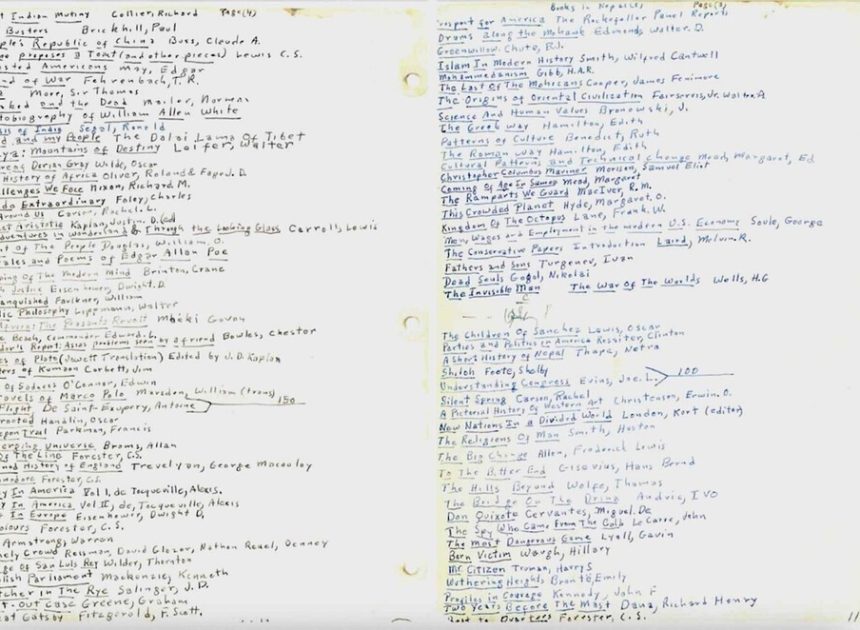 t Indian Mutiny Collier, Richard Page(4)
Busters Brickhill, Paul
ple's Republic of China Buss, Claude A.
proposes a Toast (and other pieces) Lewis C.S.
Americans May, Edgar
nd of War Fehrenbach, T.R.
a More, Sir Thomas
ked and the Dead Mailer, Norman
tobiography of William Allen White
sis of India Segal, Ronald
d and my People The Dalai Lama Of Tibet
ya: Mountains of Destiny Leifer, Walter
Dorian Gray Wilde, Oscar
History of Africa Oliver, Roland & Fage J.D.
allenges We Face Nixon, Richard M.
Extraordinary Foley, Charles
Around Us Carson, Rachel L.
Aristotle Kaplan, Justin D. (ed
dventures in wonderland & Through the Looking Glass Carroll, Lewis
t of The People Douglas, William O.
ales and Poems of Edgar Allan Poe
ping Of The Modern Mind Brinton, Crane
Eisenhower, Dwight D.
anquished Faulkner, William
lic Philosophy Lippmann, Walter
The Peasants Revolt Mbeki Govan
Beach, Commander Edward L.
dor's Report: Asias problem seen by a friend Bowles, Chester
es of Plato (Jowett Translation) Edited by J.D. Kaplan
ters of Kumaon Corbett, Jim
Of Sadness O'Connor, Edwin
ravels of Marco Polo Marsden, William (trans)
Flight De Saint-Exupery, Antoine 150
rooted Handlin, Oscar
egon Trail Parkman, Francis
erging Universe Broms, Allan
Of The Line Forester, C.S.
ned History of England Trevelyan, George Macaulay
mmodore Forester, C.S.
y In America Vol I, de Tocqueville, Alexis.
y In America Vol II, de, Tocqueville, Alexis
In Europe Eisenhower, Dwight D.
olours Forester, C.S.
Armstrong, Warren
nely Crowd Reisman, David Glazer, Nathan Reuel, Denney
ge of San Luis Rey Wilder, Thornton
lish Parliament Mackenzie, Kenneth
tcher In The Rye Salinger, J.D.
t-Out Case Greene, Graham
eat Gatsby Fitzgerald, F. Scott.
Books in Nepal(s) Page(3)
rospect for America The Rockefeller Panel Reports
Drums Along the Mohawk Edmonds, Walter. D.
Greenwillow. Chute, B.J.
Islam In Modern History Smith, Wilfred Cantwell
Mohammedanism Gibb, H.A.R.
The Last Of The Mohicans Cooper, James Fenimore
The Origins of Oriental Civilization Fairservis, Jr. Walter. A
Science And Human Values Bronowski, J.
The Greek Way Hamilton, Edith
Patterns of Culture Benedict, Ruth
The Roman Way Hamilton, Edith
Cultural Patterns and Technical Change Mead, Margaret, Ed
Christopher Columbus Mariner Morison, Samuel Eliot
Coming Of Age In Samoa Mead, Margaret
The Ramparts We Guard MacIver, R.M.
This Crowded Planet Hyde, Margaret. O.
Kingdom Of The Octopus Lane, Frank. W.
Men, Wages and Employment in the modern U.S. Economy Soule, George
The Conservative Papers Introduction Laird, Melvin. R.
Fathers and Sons Turgenev, Ivan
Dead Souls Gogol, Nikolai
The Invisible Man The War Of The Worlds Wells, H.G
The Children Of Sanchez Lewis, Oscar
Parties and Politics in America Rossiter, Clinton
A Short History of Nepal Thapa, Netra
Shiloh Foote, Shelby 100
Understanding Congress Evins, Joe. L.
Silent Spring Carson, Rachel
A Pictorial History Of Western Art Christensen, Erwin. O.
New Nations In a Divided World London, Kurt (editor)
The Religions Of Man Smith, Huston
The Big Change Allen, Frederick Lewis
To The Bitter End Gisevius, Hans Bernd
The Hills Beyond Wolfe, Thomas
The Bridge On The Drina Andric, IVO
Don Quixote Cervantes, Miguel. De
The Spy Who Came From The Cold Le Carre, John
The Most Dangerous Game Lyall, Gavin
Born Victim Waugh, Hillary
Mr Citizen Truman, Harry S
Wuthering Heights Brontë, Emily
Profiles in Courage Kennedy, John F
Two Years Before The Mast Dana, Richard Henry
Forester, C.S.